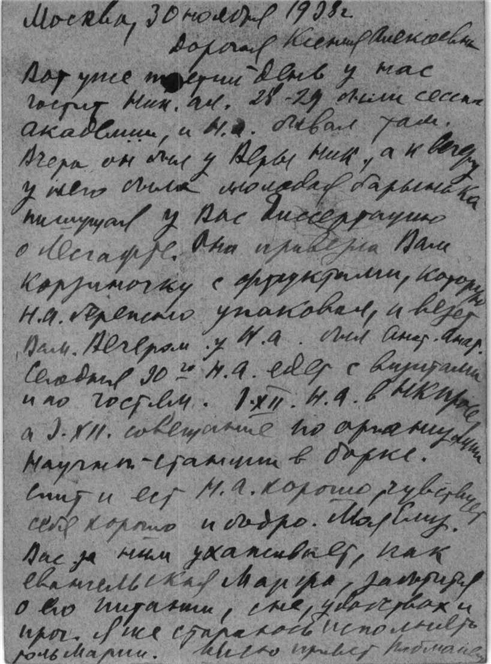 Москва, 30 ноября 1938 г
Дорогая Ксения Алексеевна
Вот уже третий день у нас
гостит Ник. Ал. 28-29 были сессии
академии, и Н.А. бывал там.
Вчера он был у Веры Ник., а к
у него была молодая барышня
пишущая у Вас Диссертацию
о Лесгафте. Она привезла Вам
корзиночку с фруктами, которую
Н.А. упаковал, и везет
Вам. Вечером у Н.А. был
Сегодня 30го Н.А. едет с визитами
и по гостям. 1.XII. Н.А. в
а XII. совещание по организации
Научной станции в борке.
Спит и ест Н.А. хорошо, чувствует
себя хорошо и бодро. Мая
Вас за ним ухаживает, как
евангельская Марфа, заботится
о его питании, сне, удобствах и
проч. Я же стараюсь исполнять
роль Марии. привет